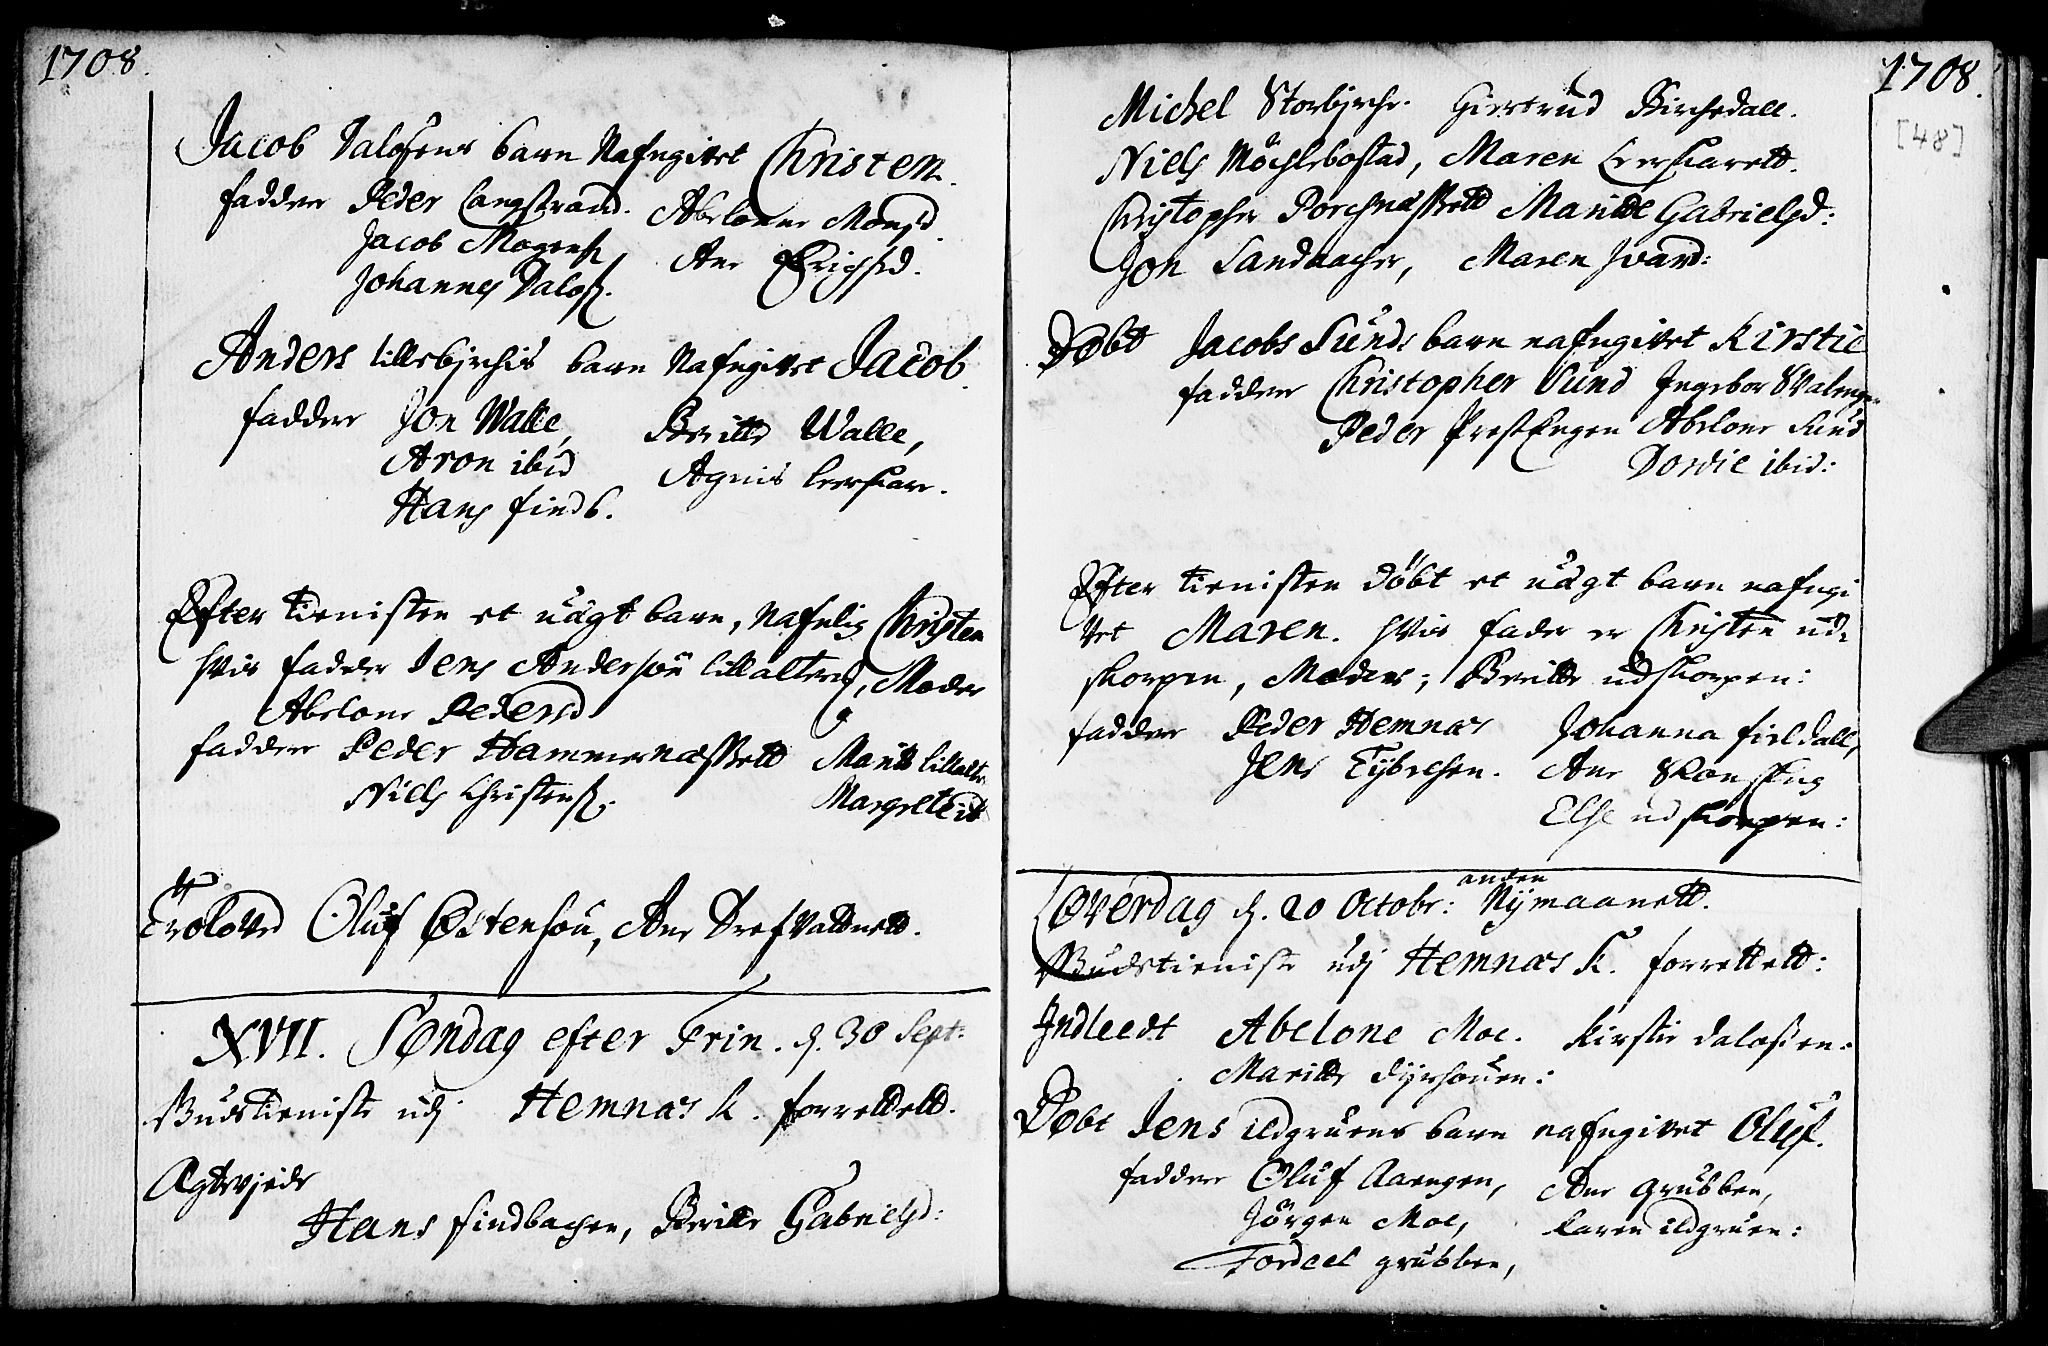 1708.
Jacob Dalosens barn Nafngivet Christen.
fadder Peder Langstrand. Abelone Monsd.
Jacob Mogens. Ane Erichsd.
Johannes Dalos.
Anders lillebjrchis barn Nafngivet Jacob.
fadder Jon Walle, Beritte Walle,
Aron ibid Agnis leerskar.
Hans find b.
Efter tienisten et uägt barn, Nafnlig Christen
hvis fadder Jens Andersøn lillalteren, Moder
Abelone Pedersd
fadder Peder Hammernæssett Marit lillalter
Niels Christens. Margrete ib
Trolovd Oluf Østensøn, Ane Drefvattnett.
XVII. Søndag efter Trin. d. 30 Sept:
Gudstieniste udj Hemnæs K. forrettett.
Ægteviede
Hans findbachen, Beritte Gabrielsd:
1708.
[48]
Michel Storbjrche. Giertrud Birchedall.
Niels Möchlebostad, Maren Leerskarett.
Christopher Porchnæssett Maritte Gabrielsd:
Jon Sandbacher, Maren Jvard:
Døbt Jacobs Sunds barn nafngivet Kirstie
fadder Christopher Sund Ingebor Svalengen
Peder PrestEngen Abelone Sund
Dordie ibid:
Efter tienisten döbt et uägt barn nafngi
vet Maren. hvis fader er Christen ud-
skorpen, Moder; Beritte udskorpen:
fadder Peder Hemnæs Johanna fieldall,
Jens Tÿbechen. Ane Rønsteg
Else udskorpen:
Løverdag d. 20 Octobr: anden Nÿmaanett.
Gudstieniste udj Hemnæs K. forrettett:
Indleedt Abelone Moe. Kirstie dalosien:
Maritte dÿrhouen:
Døbt Jens ildgruens barn nafngivet Oluf.
fadder Oluf Aaengen, Ane grubben,
Jörgen Moe, Karen ildgruen:
Tordeel grubben,